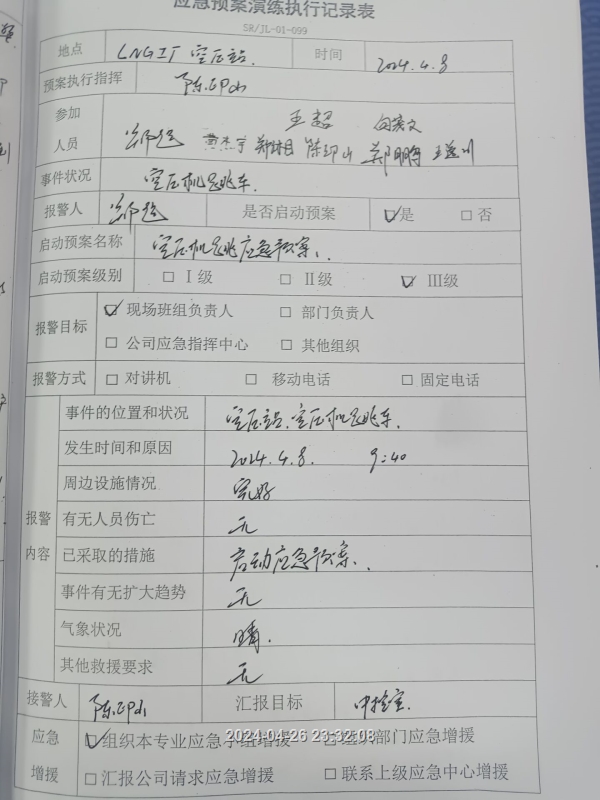 应急预案演练执行记录表
SR/JL-01-099
地点 LNG工厂 空压站. 时间 2024.4.8
预案执行指挥 陈印山
王超
参加人员 郑鹏 王
事件状况 空压机跳车.
报警人 是否启动预案 ☑是 □否
启动预案名称 空压机跳车应急预案.
启动预案级别 □Ⅰ级 □Ⅱ级 ☑Ⅲ级
报警目标 ☑现场班组负责人 □部门负责人
□公司应急指挥中心 □其他组织
报警方式 □对讲机 □移动电话 □固定电话
报警内容
事件的位置和状况 空压站.空压机跳车.
发生时间和原因 2024.4.8. 9:40
周边设施情况 完好
有无人员伤亡 无
已采取的措施 启动应急预案.
事件有无扩大趋势 无
气象状况 晴.
其他救援要求 无
接警人 陈印山 汇报目标 中控室.
应急增援 ☑组织本专业应急小组增援 □组织部门应急增援
□汇报公司请求应急增援 □联系上级应急中心增援
2024-04-26 23:32:08